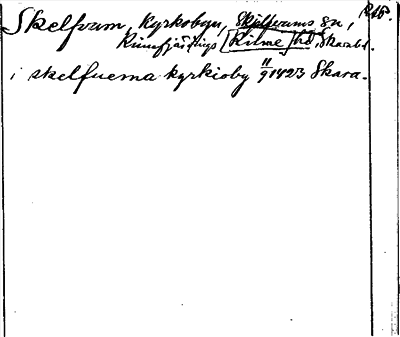 Skelfvam, kyrkobyn, Skjelfvams sn, RAP.
Kinnefjärdings [Kinne] hd, Skarabl.
i skelfuema kyrkioby 11/9 1423 Skara.